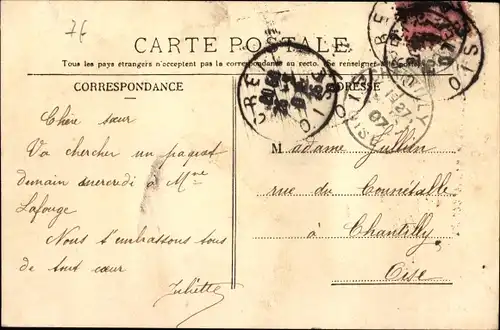 76
CARTE POSTALE
Tous les pays étrangers n'acceptent pas la correspondance au recto. Se renseigner à la poste
CORRESPONDANCE
ADRESSE
CREIL
OISE
07
CHANTILLY
27
07
OISE
Chère sœur
Va chercher un paquet
demain mercredi à Mme
Lafouge
Nous t'embrassons tous
de tout cœur
Juliette
Madame Jullien
rue du Connétable
à
Chantilly
Oise